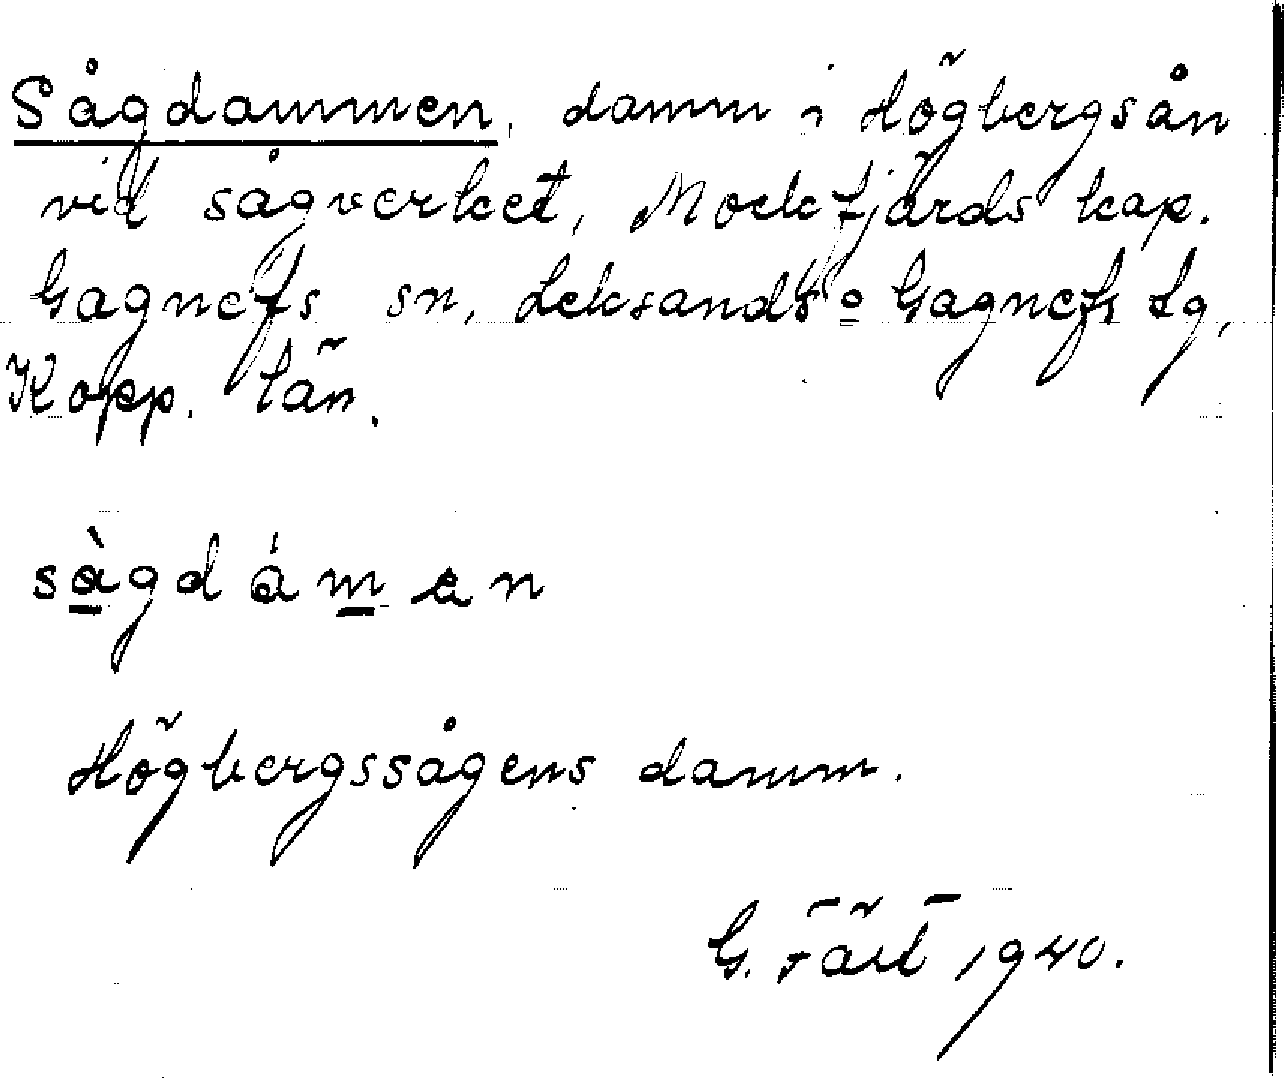 Sågdammen, damm i Högbergsån
vid sågverket, Mockfjärds kap.
Gagnefs sn, Leksands o Gagnefs tg,
Kopp. län.
sàgdámen
Högbergssågens damm.
G. 1940.